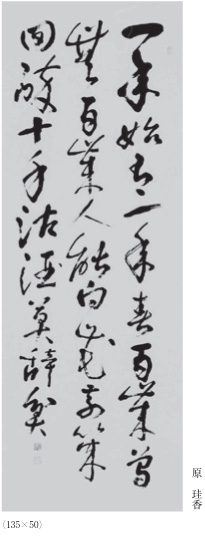 一年始有一年春百歲曾
無百歲人能向花前幾
回醉十千沽酒莫辭貧
原 珪香
(135×50)